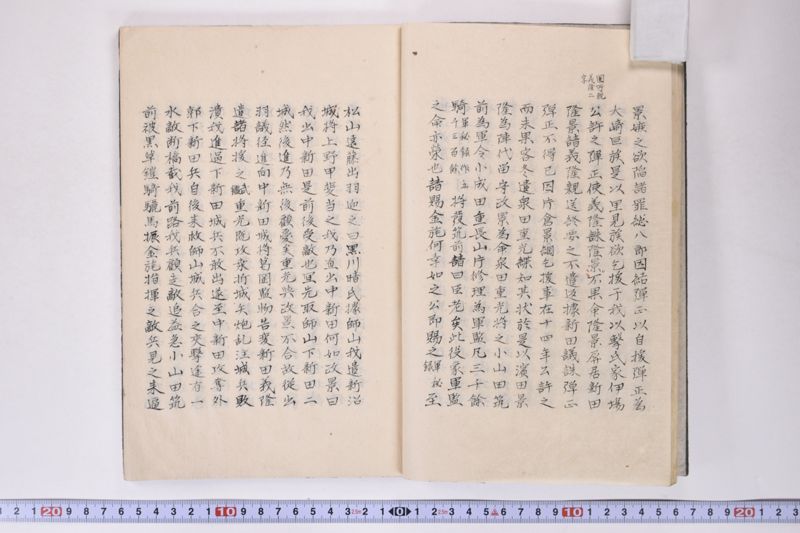 景嫉之欲陷諸罪繼八郎因結彈正以自援彈正為
大崎巨族是以里見族欲乞援于我以擊氏家伊場
公許之彈正使義隆誅隆景不果令隆景屏居新田
隆景請義隆親送終要之不遣返據新田議誅彈正
彈正不得已因片倉景綱乞援事在十四年公許之
而未果客冬遣泉田重光諜如其狀於是以濱田景
隆為陣代留守政景為命泉田重光將之小山田筑
前為軍令小成田重長山岸修理為軍監凡三千餘
騎 軍秘録作五千三百餘 將發筑前請曰臣老矣此役豪軍監
之命亦榮也請賜金旄何幸如之公即賜之 軍秘録 至
國所親義隆二字
松山遠藤出羽迎之曰黑川晴氏據師山我遣新沼
城將上野甲斐當之我乃直出中新田何如政景曰
我出中新田是前後受敵也宜先取師山下新田二
城然後進乃無後顧憂矣重光與政景不合故從出
羽議徑進向中新田城將葛岡監物告變新田義隆
遣諸將援之重光既攻衆折城矢炮乱注城兵敗
潰我進過下新田城兵不敢出遂至中新田攻奪外
郭下新田兵自後来救師山城兵合之夾擊逢有一
水敵斷橋截我前路我兵顧之敵追益急小山田筑
前被黑革鎧騎驄馬振金旄指揮之敵兵見之来逼